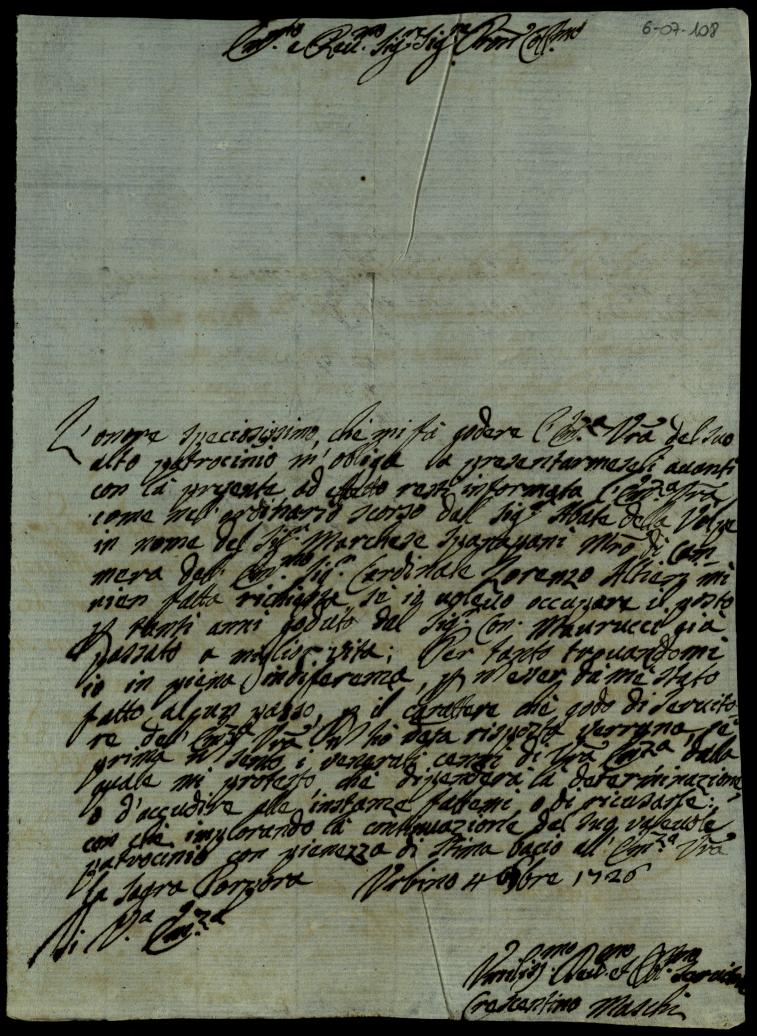 6-07-108
Em.mo e Rev.mo Sig.r Sig.re Pron Coll.mo
L'onore speciosissimo, che mi fà godere l'Em.za Vrã del suo
alto patrocinio m'obliga a presentarmeseli avanti
con la presente, ad effetto resti informata l'Em.za Vrã,
come nell'ordinario scorso dal Sig.r Abate della Volpe
in nome del Sig.r Marchese Spapapani Mrõ di Ca-
mera dell'Em.mo Sig.r Cardinale Lorenzo Altieri mi
vien fatta richiesta, se io voleuo occupare il posto
p tanti anni goduto dal Sig.r Con. Maurucci già
passato a miglior vita; Per tanto trouandomi
io in piena indiferenza, p n'esser da me stato
fatto alcun passo, e p il carattere che godo di seruito-
re dell'Em.za Vrã hò data risposta verruna, se
prima n sento i venerati cenni di Vrã Em.za dalla
quale mi protesto che dipenderà la determinazione
o d'accudire alle instanze fattemi, o di ricusarle;
con che implorando la continuazione del suo valeuole
patrocinio con pienezza di stima bacio all'Em.za Vrã
la Sagra Porpora Urbino 4 8bre 1726
Di V.a Em.za
Umiliss.mo Dev.mo et Obl.mo Servitore
Crescentino Maschi